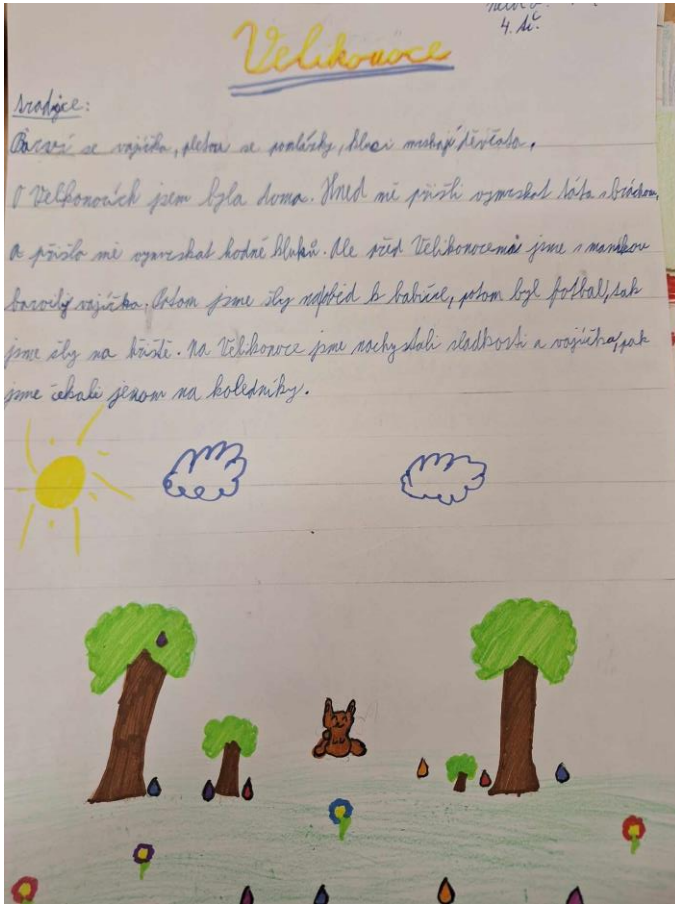 4. tř.
Velikonoce
Tradice:
Barví se vajíčka, pletou se pomlázky, kluci mrskají děvčata.
O Velikonocích jsem byla doma. Hned mě přišli vymrskat táta s bráchou,
a přišlo mě vymrskat hodně kluků. Ale před Velikonocema jsme s mamkou
barvily vajíčka. Potom jsme šly naoběd k babičce, potom byl fotbal, tak
jsme šly na hřiště. Na Velikonoce jsme nachystali sladkosti a vajíčka, pak
jsme čekali jenom na koledníky.